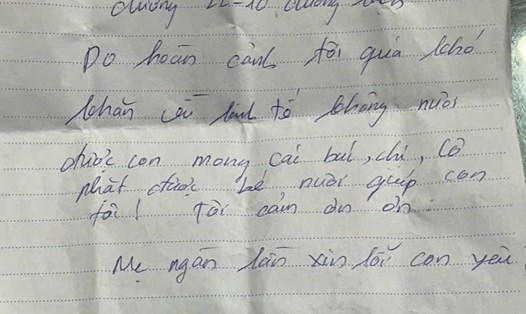 dương 22-10 dương
Do hoàn cảnh tôi quá khó
khăn về kinh tế không nuôi
được con mong các bác, chị, cô
nhặt được bé nuôi giúp con
tôi! Tôi cảm ơn
Mẹ ngàn lần xin lỗi con yêu